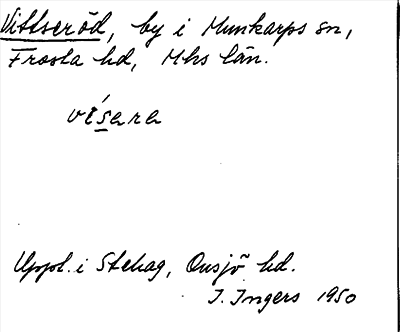 Vittseröd, by i Munkarps sn,
Frosta hd, Mhs län.
vísara
Uppl. i Stehag, Onsjö hd.
I. Ingers 1950